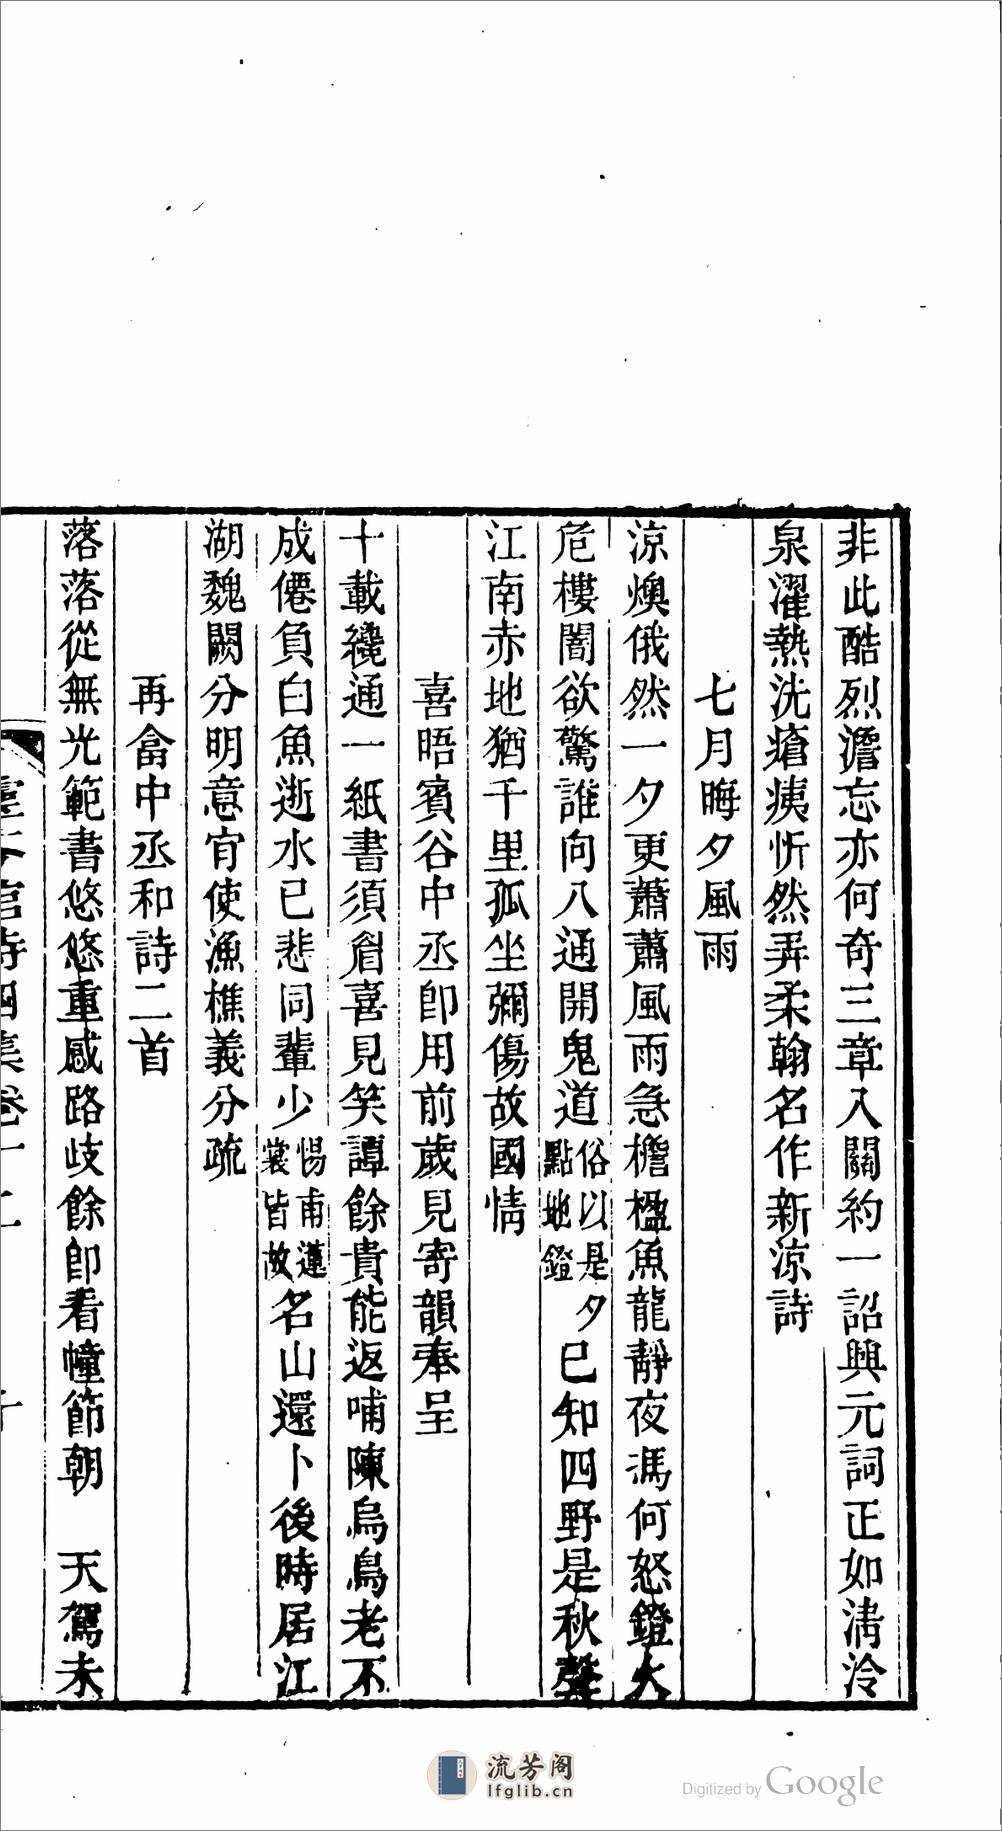 非此酷烈澹忘亦何奇三章入關約一詔興元詞正如淸泠
泉濯熱洗瘡痍忻然弄柔翰名作新涼詩
七月晦夕風雨
涼燠俄然一夕更蕭蕭風雨急檐楹魚龍靜夜馮何怒鐙火
危樓闇欲驚誰向八通開鬼道俗以是夕點地鐙已知四野是秋聲
江南赤地猶千里孤坐彌傷故國情
喜晤賓谷中丞卽用前歲見寄韻奉呈
十載纔通一紙書須眉喜見笑譚餘貴能返哺陳烏鳥老不
成僊負白魚逝水已悲同輩少惕甫蓮裳皆故名山還卜後時居江
湖魏闕分明意肎使漁樵義分疏
再畣中丞和詩二首
落落從無光範書悠悠重感路歧餘卽看幢節朝 天駕未
詩四集卷十二
十
流芳阁
lfglib.cn
Digitized by Google